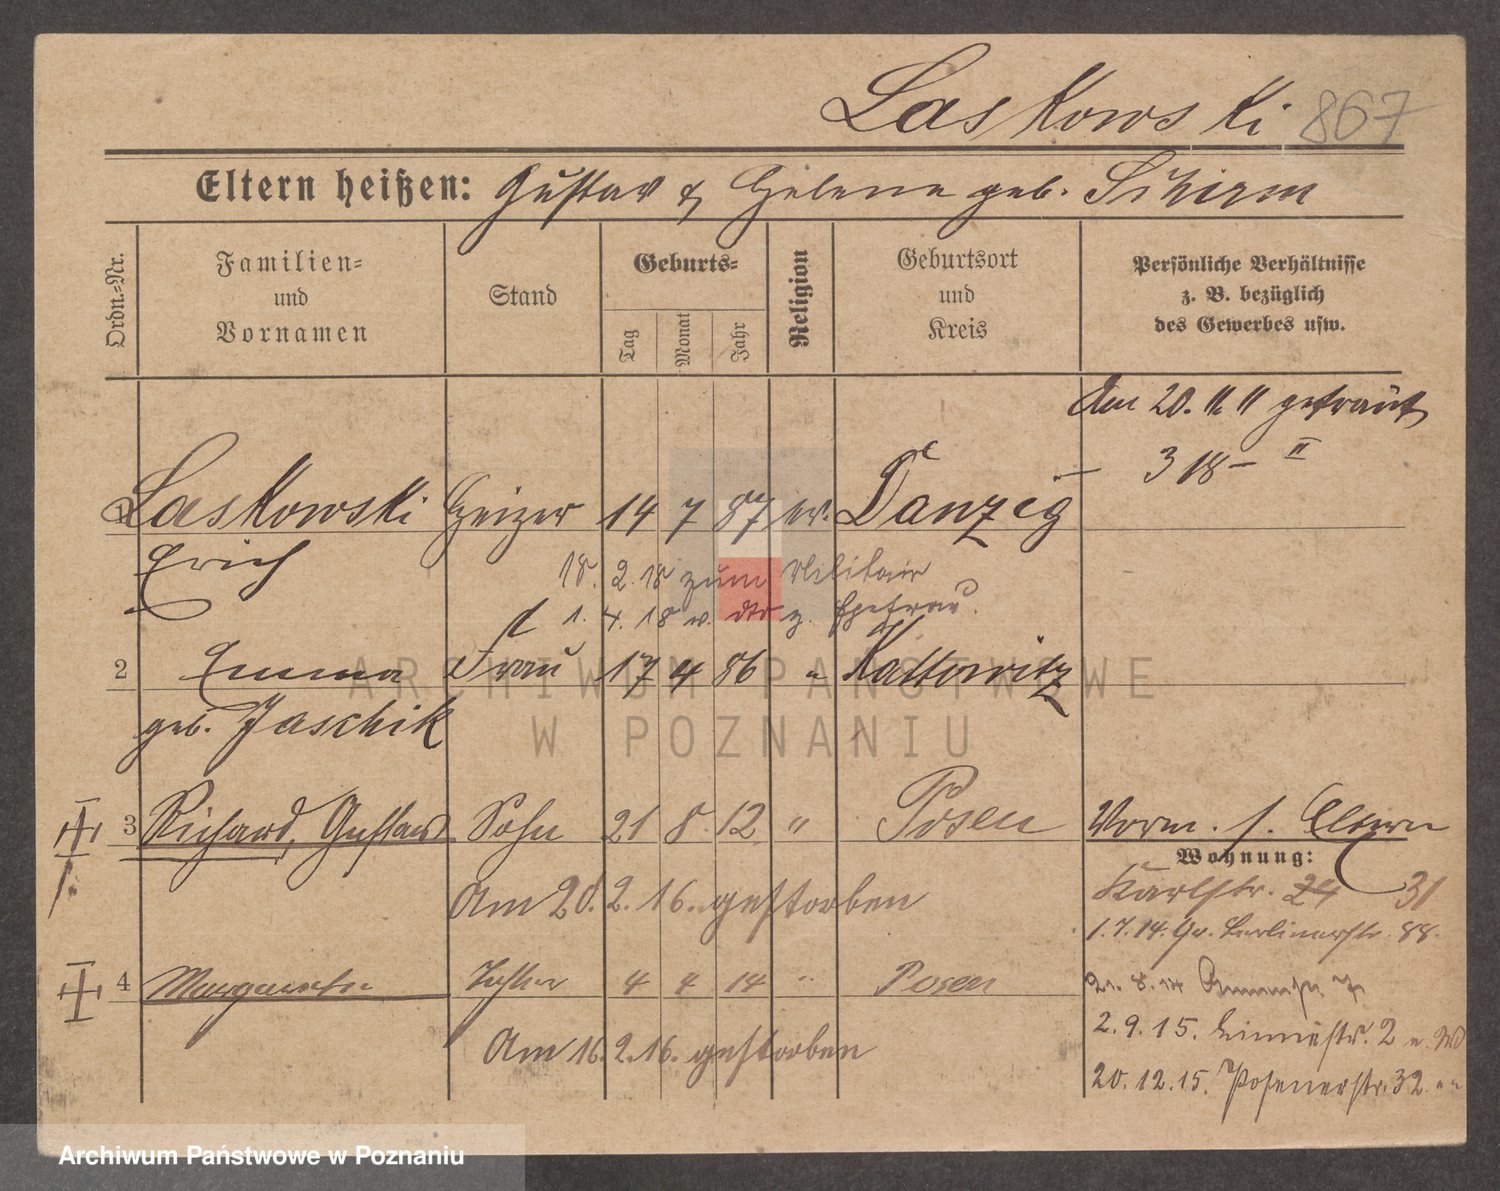 Laskowski 867
Eltern heißen: Gustav & Helene geb. Schirm
Ordn.-Nr.
Familien-
und
Vornamen
Stand
Geburts-
Tag
Monat
Jahr
Religion
Geburtsort
und
Kreis
Persönliche Verhältnisse
z. B. bezüglich
des Gewerbes usw.
Am 20. 11. 11 getraut
318 - II
1 Laskowski Heizer 14 7 87 ev. Danzig
Erich
18. 2. 18 zum Militair
1. 4. 18 v. z. Ehefrau.
2 Emma Frau 17 4 86 " Kattowitz
geb. Jaschik
3 Richard, Gustav Sohn 21 8 12 " Posen
Vorm. s. Eltern
Wohnung:
Am 20. 2. 16. gestorben
Karlstr. 24 31
1.7.14. Gr. Berlinerstr. 88.
4 Margarete Tochter 4 4 14 " Posen
21. 8. 14
2. 9. 15. 2
Am 16. 2. 16. gestorben
20. 12. 15. Posenerstr. 32
ARCHIWUM PAŃSTWOWE
W POZNANIU
Archiwum Państwowe w Poznaniu